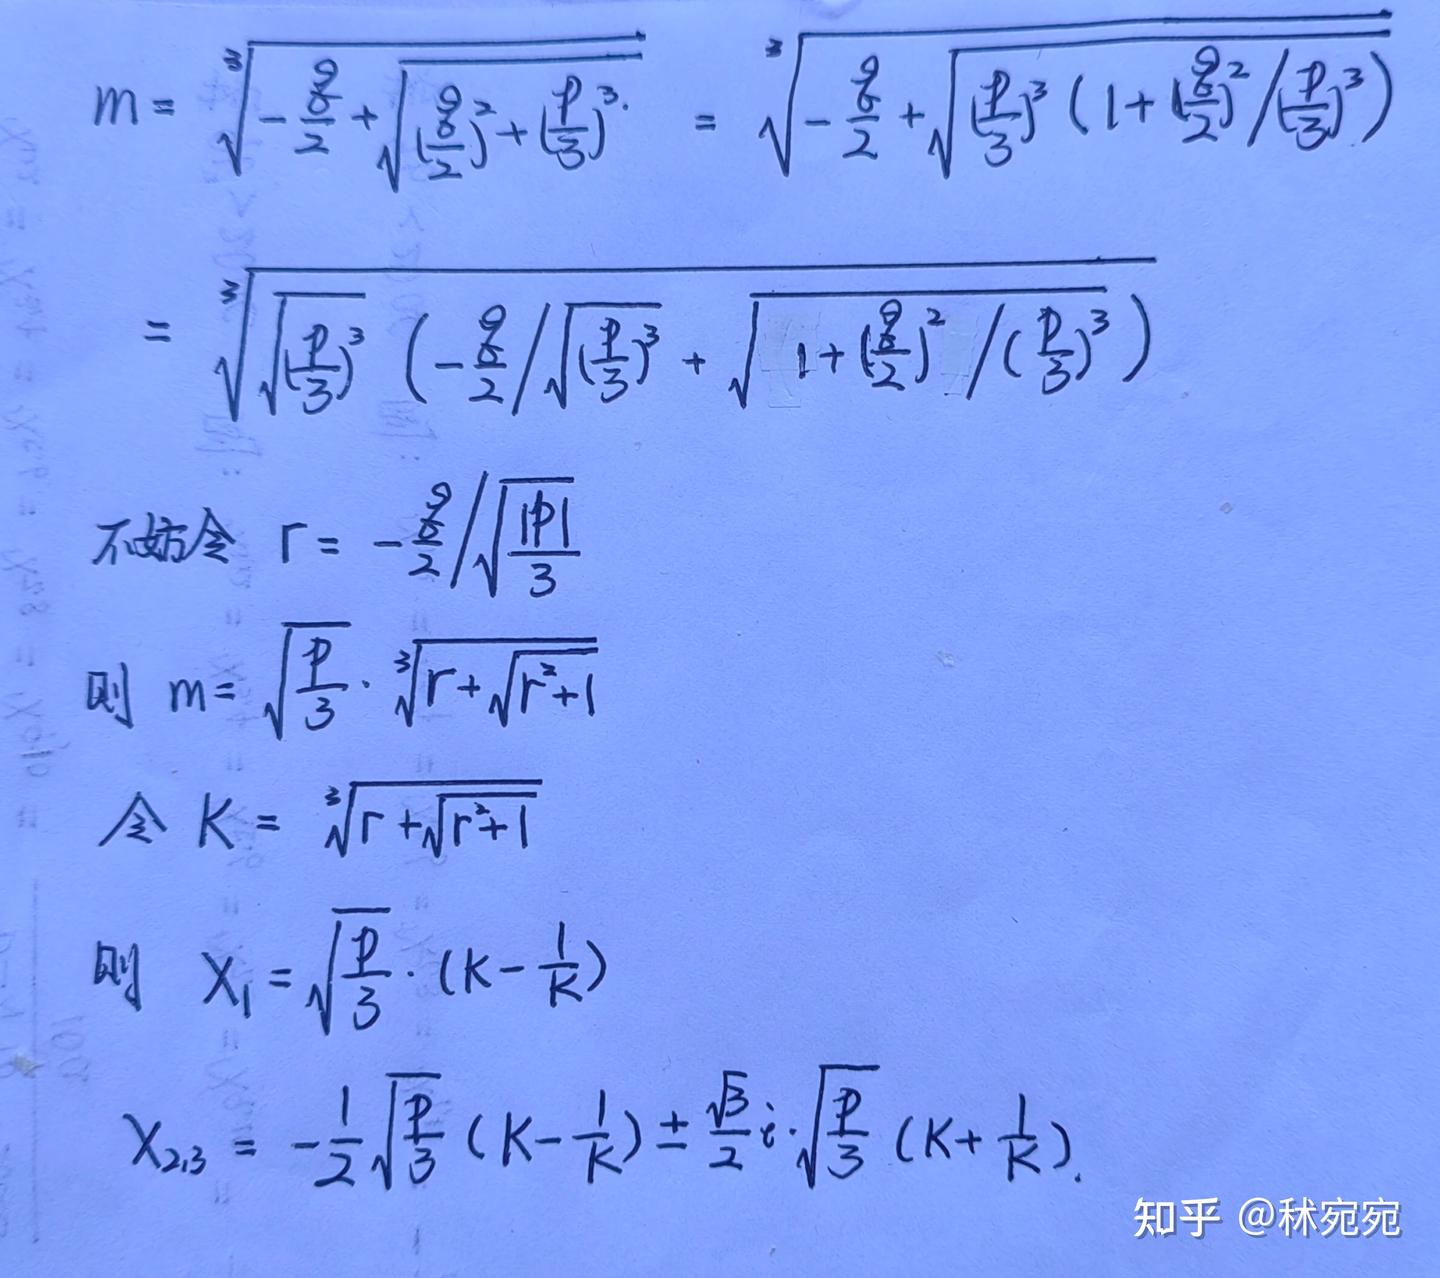 m = ∛(-q/2 + √((q/2)² + (p/3)³)) = ∛(-q/2 + √((p/3)³(1 + (q/2)²/(p/3)³)))
= ∛(√(p/3)³ (-q/2 / √(p/3)³ + √(1 + (q/2)²/(p/3)³)))
不妨令 r = -q/2 / √(|p|/3)
则 m = √(p/3) · ∛(r + √(r²+1))
令 K = ∛(r + √(r²+1))
则 X₁ = √(p/3) · (K - 1/K)
X₂,₃ = -1/2 √(p/3) (K - 1/K) ± √3/2 i · √(p/3) (K + 1/K).
知乎 @秫宛宛